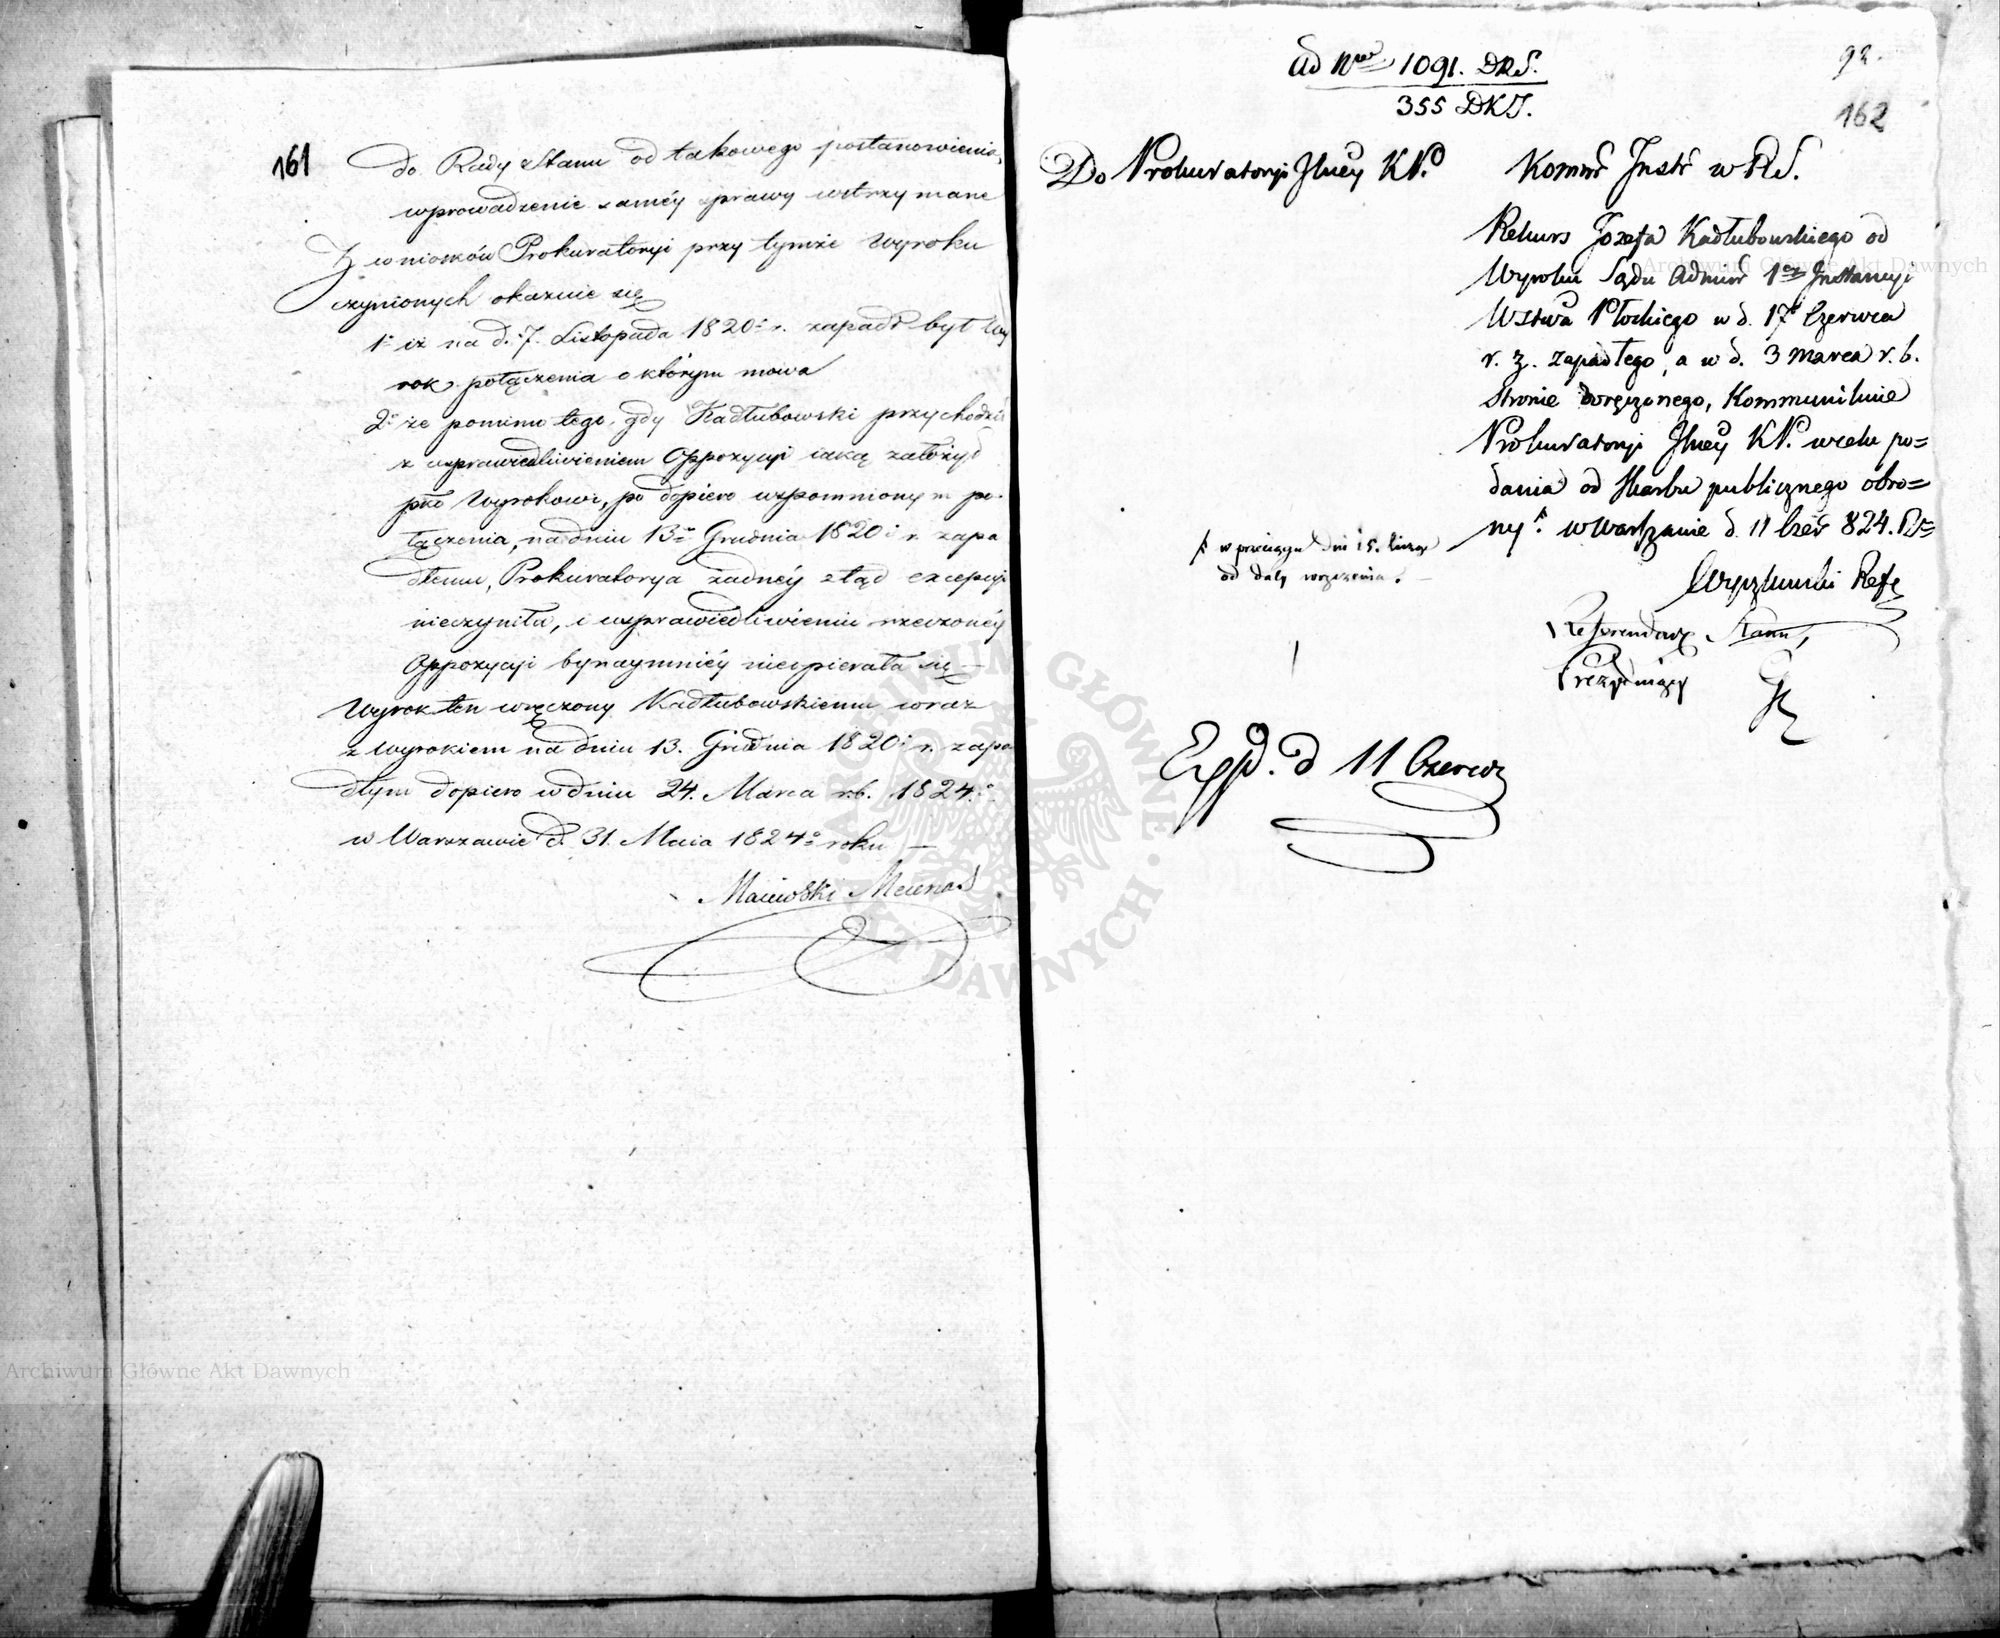 161
do Rady Stanu od takowego postanowienia,
wprowadzenie saméy sprawy wstrzymane
Z wniosków Prokuratoryi przy tymże Wyroku
czynionych okazuie się
1º iż na d. 7. Listopada 1820º r. zapadł był Wy
rok połączenia o którym mowa
2º że pomimo tego, gdy Kadłubowski przychodził
z usprawiedliwieniem Oppozycyi iaką założył
pko Wyrokowi, po dopiero wspomnionym po-
łączenia, na dniu 13º Grudnia 1820 r. zapa
dłemu, Prokuratorya żadnéy ztąd excepcyi
nieczyniła, i usprawiedliwieniu rzeczonéy
Oppozycyi bynaymniéy nieopierała się —
Wyrok ten wręczony Kadłubowskiemu wraz
z Wyrokiem na dniu 13. Grudnia 1820 r. zapa
dłym dopiero w dniu 24. Marca r.b. 1824.º
w Warszawie d. 31. Maia 1824º roku —
Maiewski Mecenas
92.
162
ad Nrw 1091. DRS.
355 DKJ.
Do Prokuratoryi Jlney KP.
Kommis Instr w RS.
Rekurs Jozefa Kadłubowskiego od
Wyroku Sądu Admin 1ey Instancyi
Wztwa Płockiego w d. 17 Czerwca
r. z. zapadłego, a w d. 3 Marca r. b.
stronie doręczonego, Kommunikuie
Prokuratoryi Jlney KP. w celu po=
dania od Skarbu publicznego obro=
ny. w Warszawie d. 11 Czer 824. R=
w przeciągu dni 15. licząc
od daty wręczenia.
Wyczchowski Refe
Referendarz Stanu,
Prezyduiący
Exp. d 11 Czerwca
Archiwum Główne Akt Dawnych
Archiwum Główne Akt Dawnych
ARCHIWUM GŁÓWNE AKT DAWNYCH